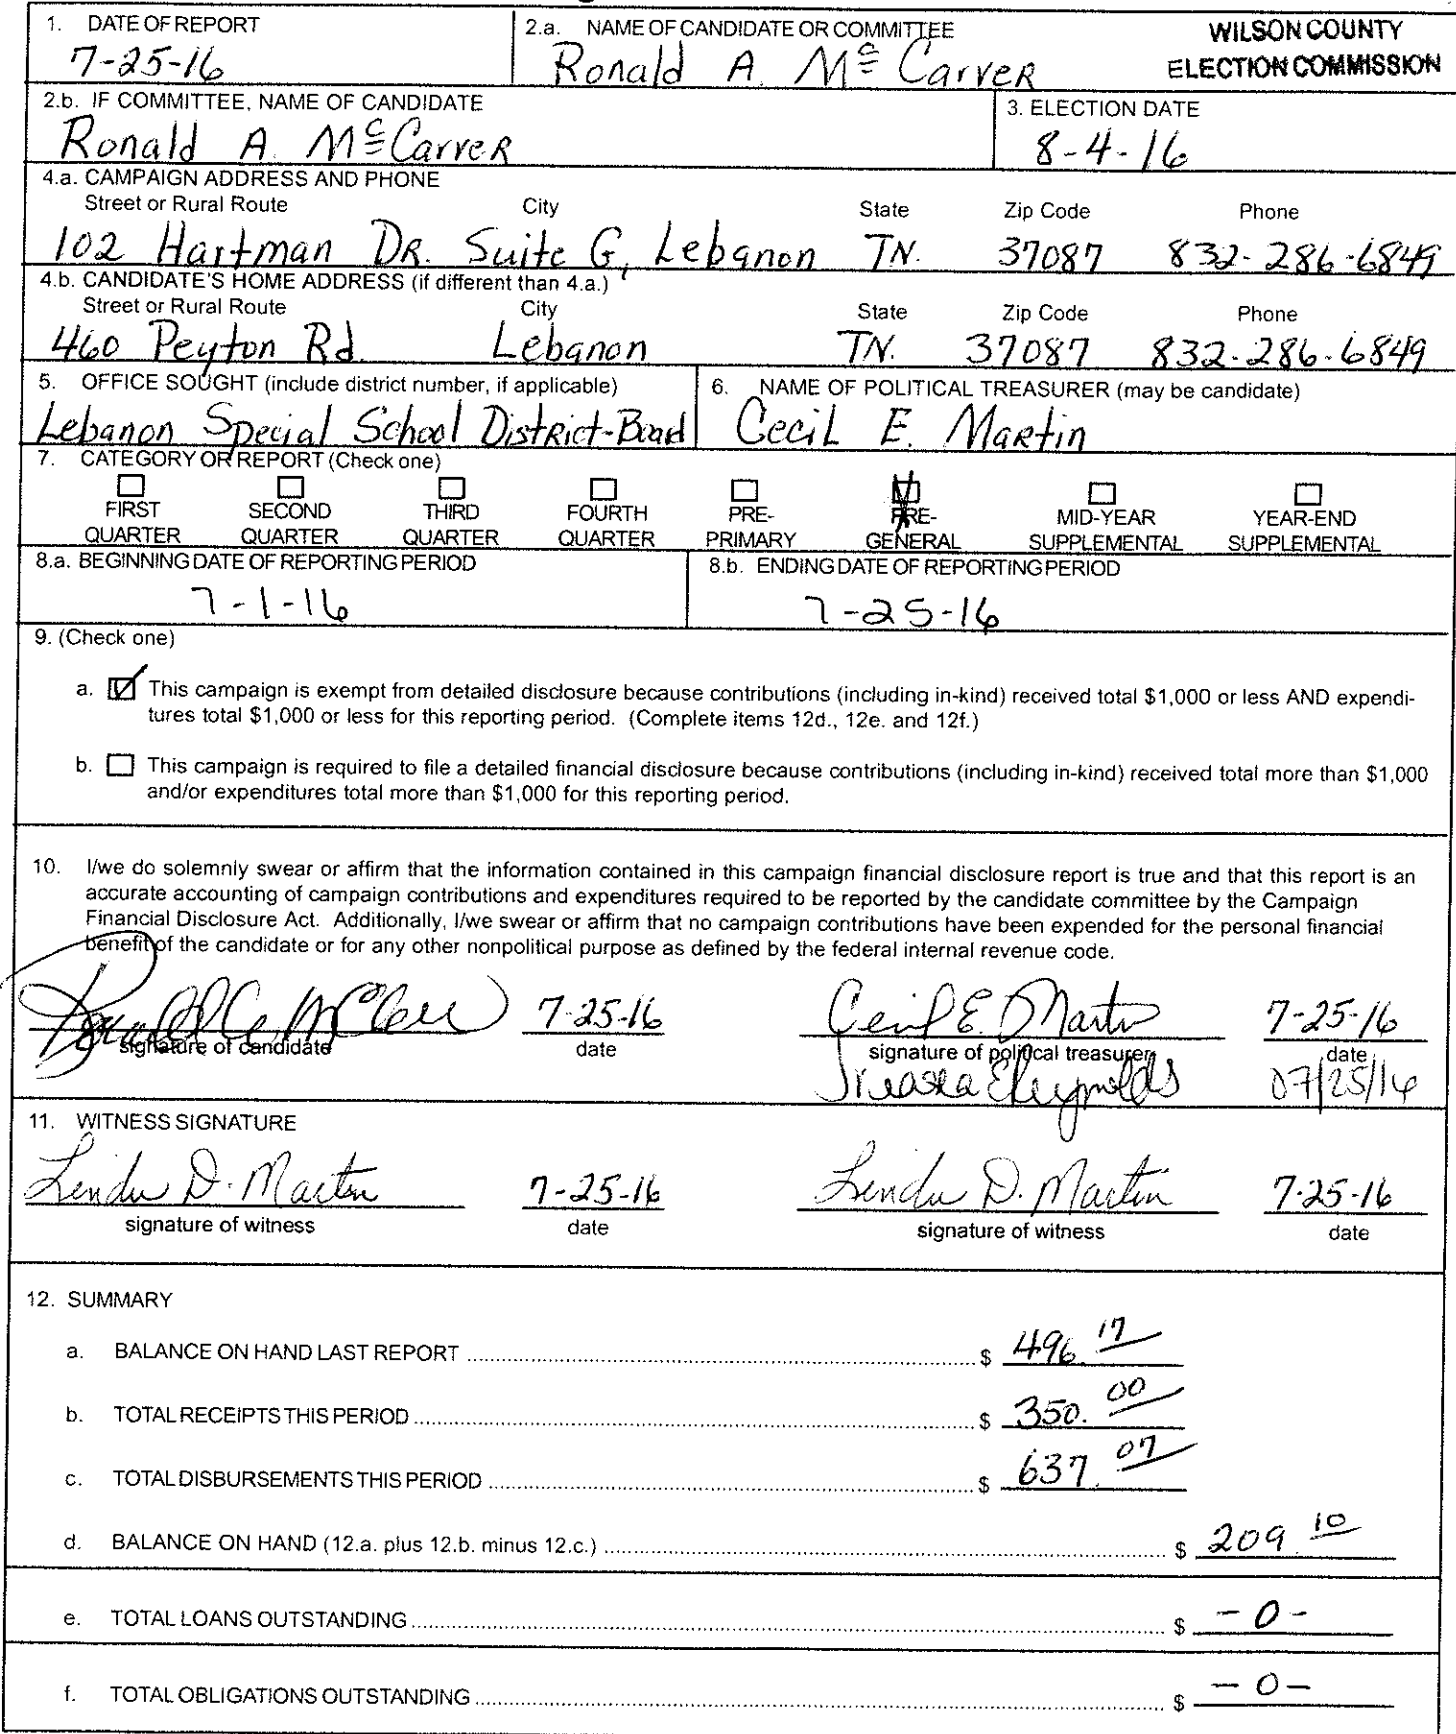 1. DATE OF REPORT
7-25-16
2.a. NAME OF CANDIDATE OR COMMITTEE
Ronald A. McCarver
WILSON COUNTY
ELECTION COMMISSION
2.b. IF COMMITTEE, NAME OF CANDIDATE
Ronald A. McCarver
3. ELECTION DATE
8-4-16
4.a. CAMPAIGN ADDRESS AND PHONE
Street or Rural Route City State Zip Code Phone
102 Hartman DR. Suite G, Lebanon TN. 37087 832-286-6849
4.b. CANDIDATE'S HOME ADDRESS (if different than 4.a.)
Street or Rural Route City State Zip Code Phone
460 Peyton Rd. Lebanon TN. 37087 832-286-6849
5. OFFICE SOUGHT (include district number, if applicable)
Lebanon Special School District-Boad
6. NAME OF POLITICAL TREASURER (may be candidate)
Cecil E. Martin
7. CATEGORY OR REPORT (Check one)
FIRST QUARTER
SECOND QUARTER
THIRD QUARTER
FOURTH QUARTER
PRE-PRIMARY
PRE-GENERAL
MID-YEAR SUPPLEMENTAL
YEAR-END SUPPLEMENTAL
8.a. BEGINNING DATE OF REPORTING PERIOD
7-1-16
8.b. ENDING DATE OF REPORTING PERIOD
7-25-16
9. (Check one)
a. This campaign is exempt from detailed disclosure because contributions (including in-kind) received total $1,000 or less AND expendi-
tures total $1,000 or less for this reporting period. (Complete items 12d., 12e. and 12f.)
b. This campaign is required to file a detailed financial disclosure because contributions (including in-kind) received total more than $1,000
and/or expenditures total more than $1,000 for this reporting period.
10. I/we do solemnly swear or affirm that the information contained in this campaign financial disclosure report is true and that this report is an
accurate accounting of campaign contributions and expenditures required to be reported by the candidate committee by the Campaign
Financial Disclosure Act. Additionally, I/we swear or affirm that no campaign contributions have been expended for the personal financial
benefit of the candidate or for any other nonpolitical purpose as defined by the federal internal revenue code.
7-25-16 Cecil E. Martin 7-25-16
signature of candidate date signature of political treasurer date
Reynolds 07/25/16
11. WITNESS SIGNATURE
Linda D. Martin 7-25-16 Linda D. Martin 7-25-16
signature of witness date signature of witness date
12. SUMMARY
a. BALANCE ON HAND LAST REPORT $ 496.17
b. TOTAL RECEIPTS THIS PERIOD $ 350.00
c. TOTAL DISBURSEMENTS THIS PERIOD $ 637.07
d. BALANCE ON HAND (12.a. plus 12.b. minus 12.c.) $ 209.10
e. TOTAL LOANS OUTSTANDING $ -0-
f. TOTAL OBLIGATIONS OUTSTANDING $ -0-